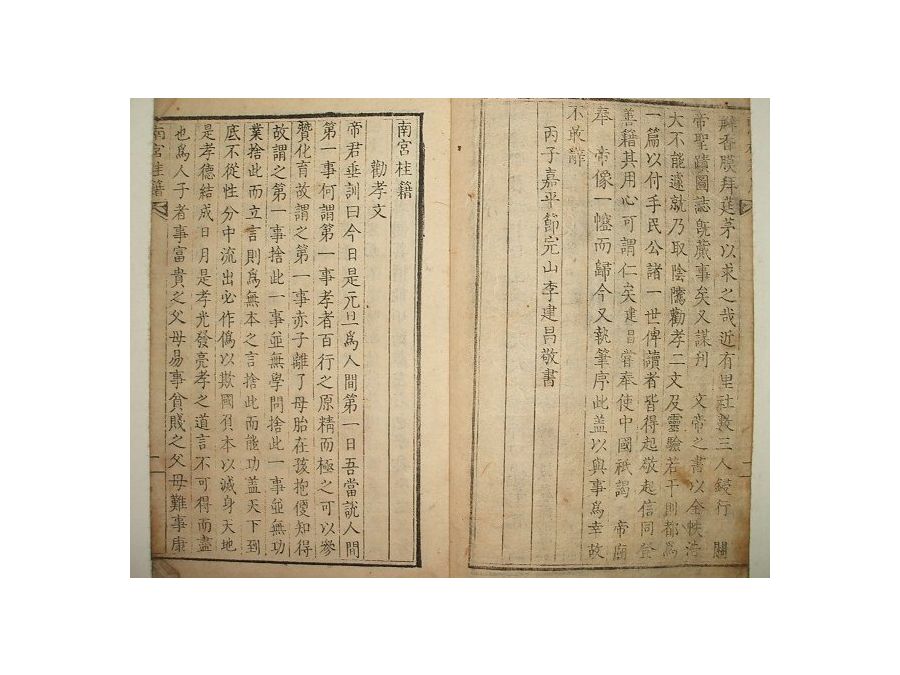 瓣香膜拜莛茅以求之哉近有里社數三人鋟行 關
帝聖蹟圖誌旣蕆事矣又謀刋 文帝之書以全帙浩
大不能遽就乃取陰隲勸孝二文及靈驗若干則都爲
一篇以付手民公諸一世俾讀者皆得起敬起信同登
善籍其用心可謂仁矣建昌嘗奉使中國祗謁 帝廟
奉 帝像一幢而歸今又執筆序此盖以與事爲幸故
不敢辭
丙子嘉平節完山李建昌敬書
南宮桂籍
勸孝文
帝君垂訓曰今日是元旦爲人間第一日吾當說人間
第一事何謂第一事孝者百行之原精而極之可以參
贊化育故謂之第一事赤子離了母胎在孩抱便知得
故謂之第一事捨此一事並無學問捨此一事並無功
業捨此而立言則爲無本之言捨此而能功盖天下到
底不從性分中流出必作僞以欺國負本以滅身天地
是孝德結成日月是孝光發亮孝之道言不可得而盡
也爲人子者事富貴之父母易事貧賤之父母難事康
南宮桂籍
一